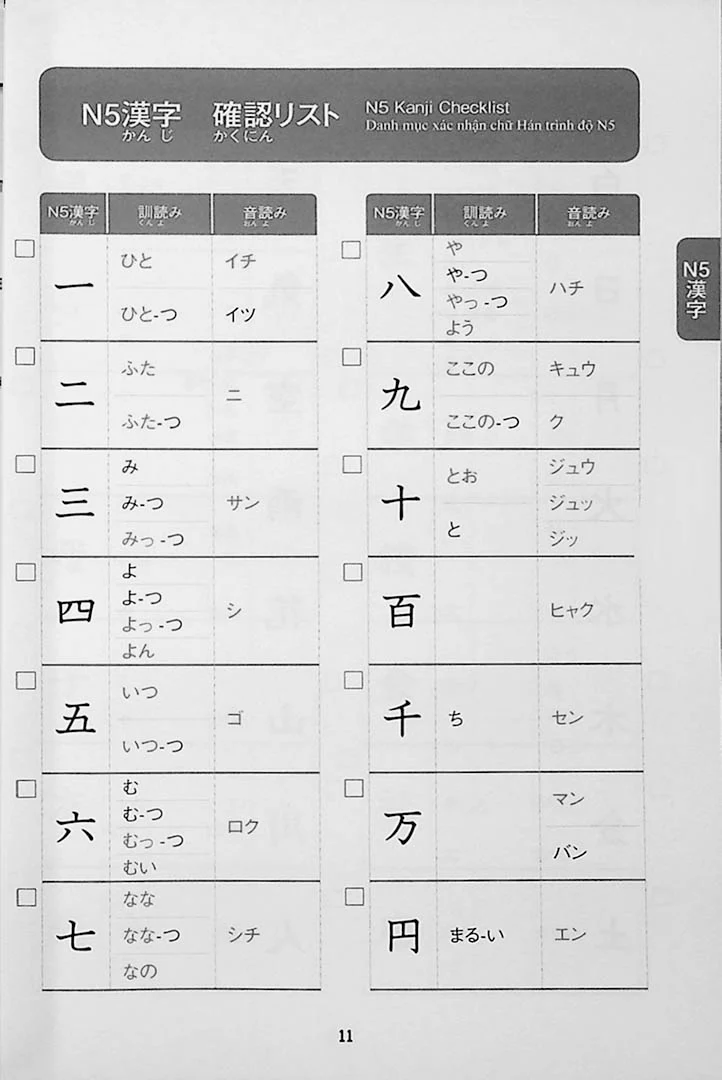 N5漢字 確認リスト
かんじ かくにん
N5 Kanji Checklist
Danh mục xác nhận chữ Hán trình độ N5
N5漢字 訓読み 音読み
かんじ くんよ おんよ
一 ひと イチ
ひと-つ イツ
二 ふた ニ
ふた-つ
三 み サン
み-つ
みっ-つ
四 よ シ
よ-つ
よっ-つ
よん
五 いつ ゴ
いつ-つ
六 む ロク
む-つ
むっ-つ
むい
七 なな シチ
なな-つ
なの
N5漢字 訓読み 音読み
かんじ くんよ おんよ
八 や ハチ
や-つ
やっ-つ
よう
九 ここの キュウ
ここの-つ ク
十 とお ジュウ
と ジュッ
ジッ
百 ヒャク
千 ち セン
万 マン
バン
円 まる-い エン
N5漢字
11